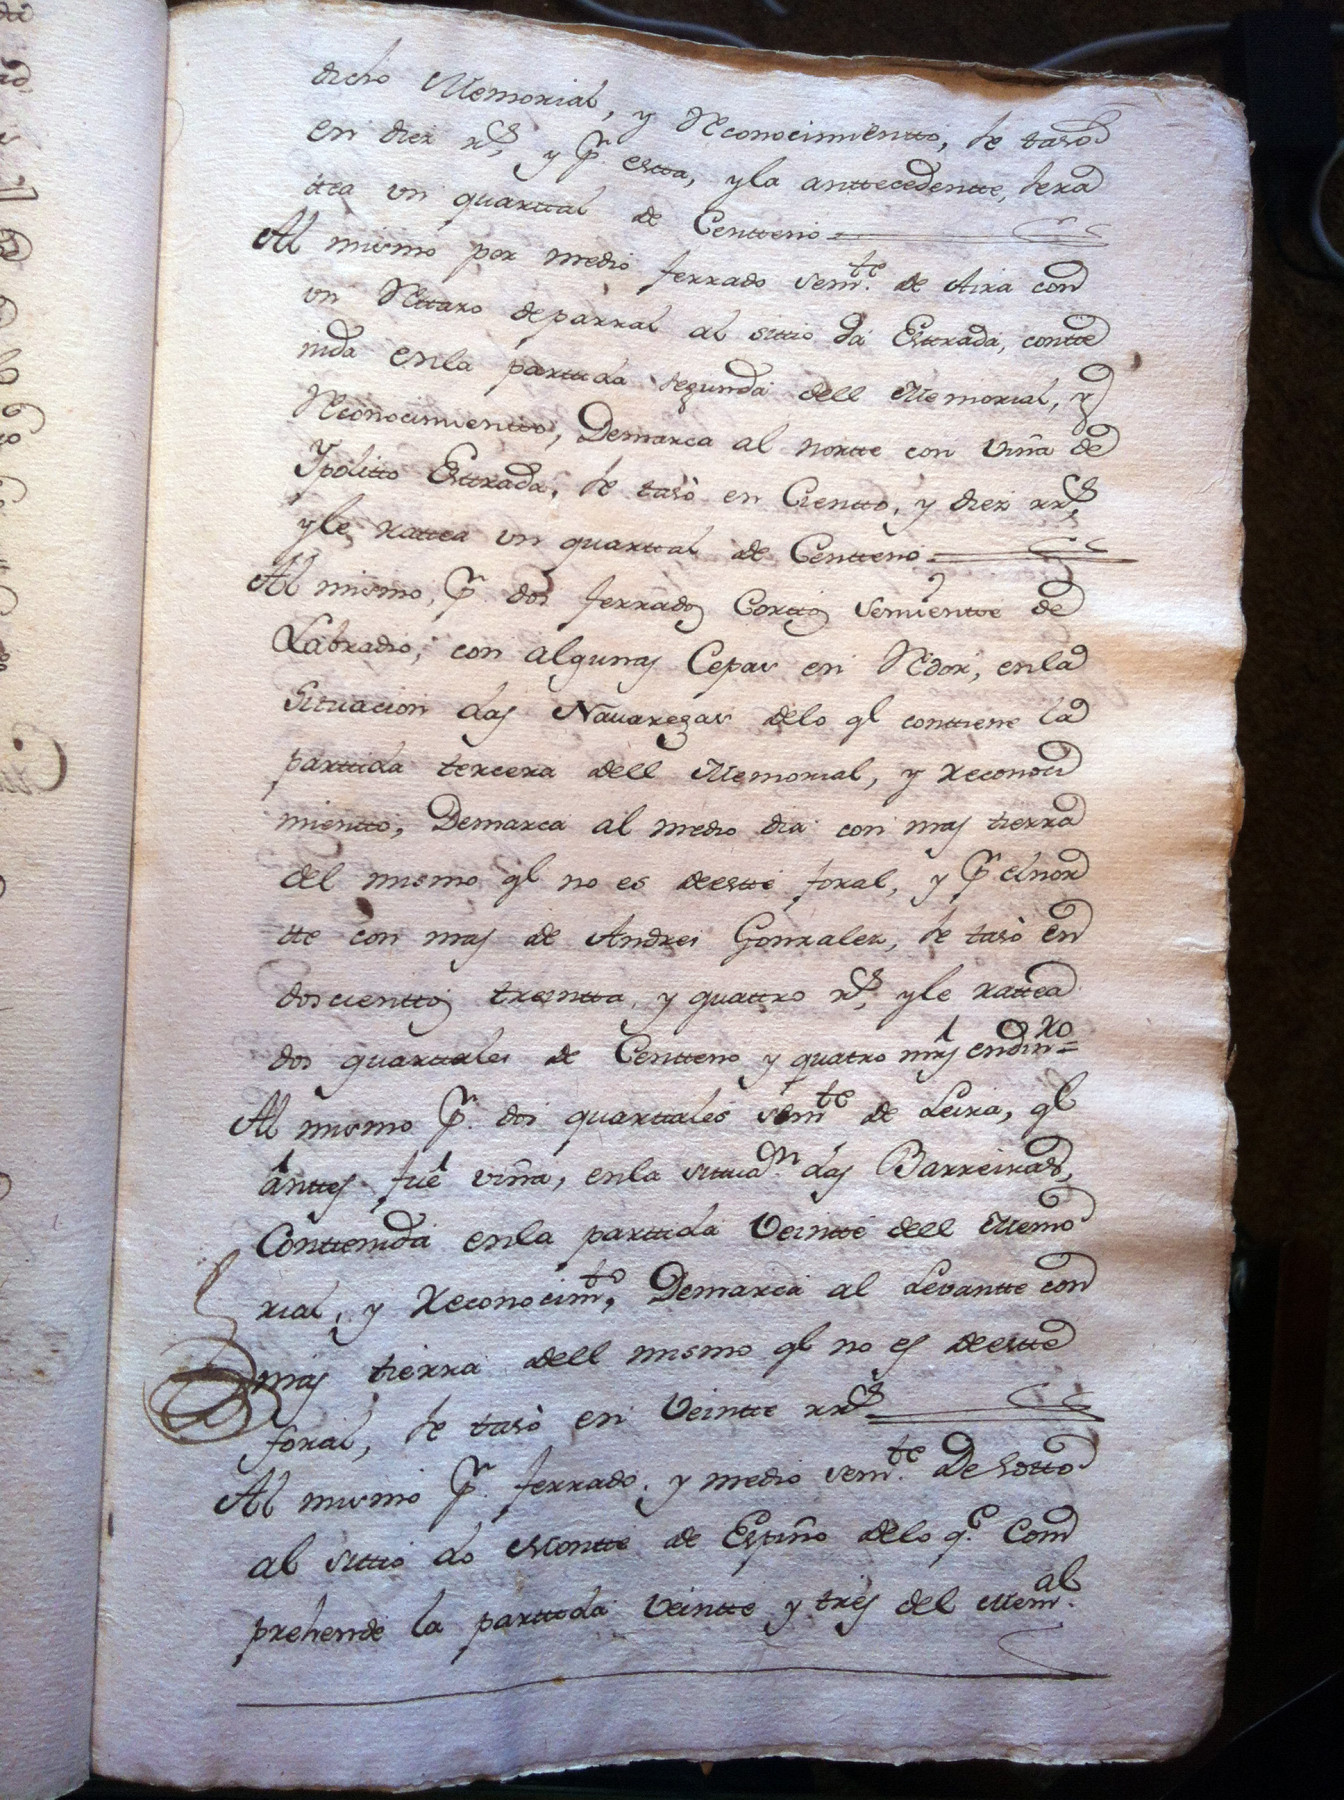 dicho Memorial, y Reconocimientto, se tasó
en diez rs, y pr. estta, y la anttecedentte, se ra
ttea un quarttal de Centteno
Al mismo por medio ferrado semte. de Aira con
un Rettazo de parral al sittio da Esttrada, contte
nida en la parttida segunda dell Memorial, y
Reconocimientto, Demarca al nortte con viña de
Ypolitto Esttrada, se tasó en Cientto, y diez rrs,
y le rattea un quarttal de Centteno
Al mismo, pr. dos ferrados Corttos semientte de
Labradio, con algunas Cepas en Rdor, en la
Situacion das Navaregas de lo ql conttiene la
parttida tercera dell Memorial, y reconoci
mientto, Demarca al medio dia con mas tierra
del mismo ql no es de estte foral, y pr el nor
tte con mas de Andres Gonzalez, se tasó en
doscienttos treintta, y quattro rs, y le rattea
dos quarttales de Centteno y quatro mrs en dinro=
Al mismo pr. dos quarttales semte de Leira, ql
anttes fue viña, en la sittuan. das Barreiras,
Conttenida en la parttida Veintte dell Memo
rial, y Reconocimto, Demarca al Levantte con
mas tierra dell mismo ql no es de estte
foral, se tasó en Veintte rrs
Al mismo pr. ferrado, y medio semte. De Sotto
al sittio do Montte de Espiño de lo qe. Com
prehende la parttida Veintte y tres del Memal.